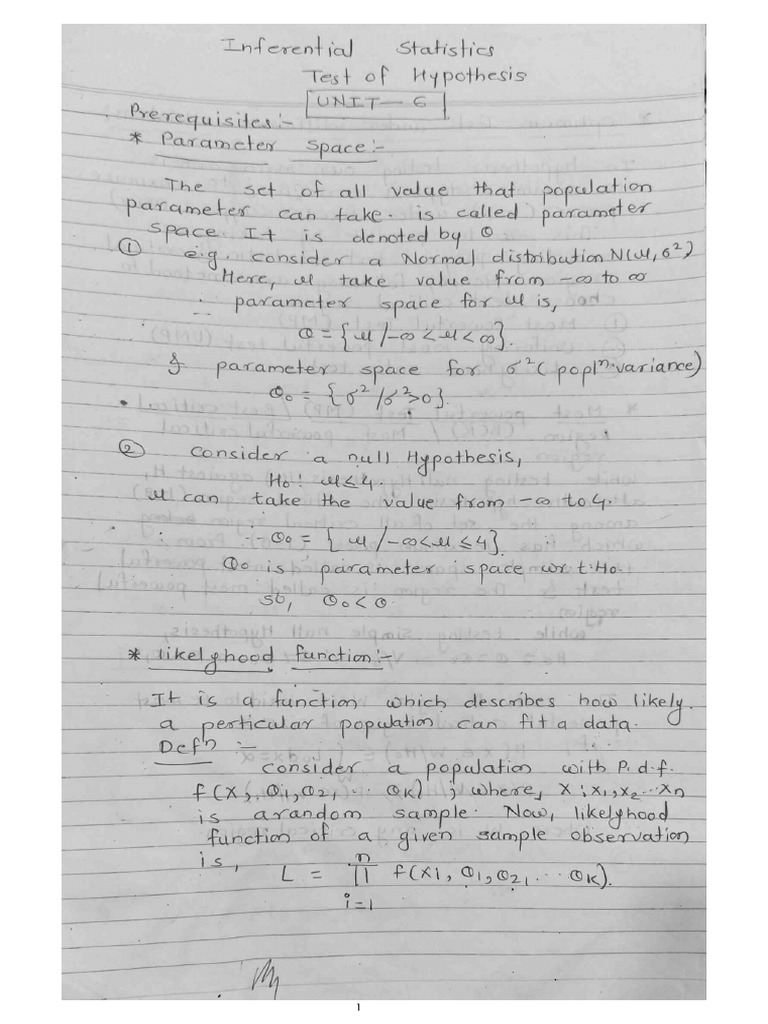 Inferential Statistics
Test of Hypothesis
UNIT-6
Prerequisites:-
* Parameter Space:-
The set of all value that population
parameter can take. is called parameter
space It is denoted by Θ
① e.g. consider a Normal distribution N(μ, σ²)
Here, μ take value from -∞ to ∞
∴ parameter space for μ is,
Θ = {μ/-∞<μ<∞}.
& parameter space for σ² (poplⁿ. variance)
Θ₀ = {σ²/σ²>0}.
② Consider a null Hypothesis,
H₀: μ≤4.
μ can take the value from -∞ to 4.
∴ Θ₀ = {μ/-∞<μ≤4}.
Θ₀ is parameter space wr t. H₀.
so, Θ₀ < Θ
* likelyhood function:-
It is a function which describes how likely
a perticular population can fit a data.
Defⁿ :-
consider a population with P.d.f.
f(x, θ₁, θ₂, ... θₖ) ; where, x: x₁, x₂ ... xₙ
is arandom sample. Now, likelyhood
function of a given sample observation
is,
L = n ∏ i=1 f(xi, θ₁, θ₂, ... θₖ).
1